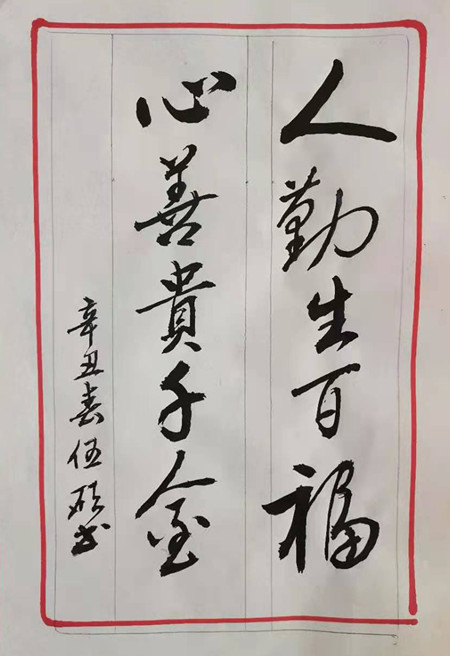 人勤生百福
心善貴千金
辛丑春伍硕书